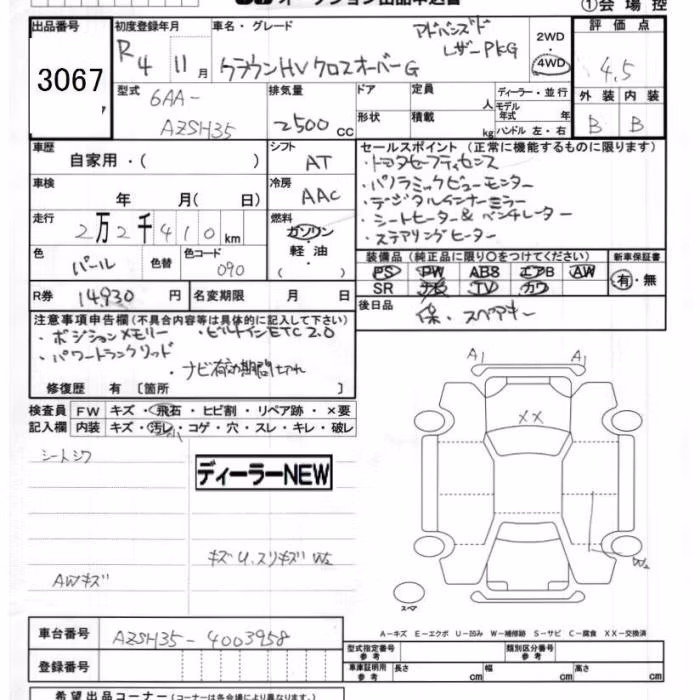 オークション出品申込書 ①会場控
出品番号 初度登録年月 車名・グレード 評価点
3067 R4 11月 クラウンHV クロスオーバーG アドバンズド レザーPKG 2WD 4WD 4.5
型式 6AA- AZSH35 排気量 2500 cc ドア 定員 人 ディーラー・並行 外装 内装
形状 積載 kg モデル年式 年 ハンドル 左・右 B B
車歴 自家用・( ) シフト AT セールスポイント (正常に機能するものに限ります)
・トヨタセーフティセンス
車検 年 月( 日) 冷房 AAC ・パノラミックビューモニター
・デジタルインナーミラー
走行 2万2千410km 燃料 ガソリン ・シートヒーター&ベンチレーター
軽油 ( ) ・ステアリングヒーター
色 パール 色替 色コード 090 装備品 (純正品に限り○をつけてください) 新車保証書
PS PW ABS エアB AW 有・無
R券 14,930円 名変期限 月 日 SR ナビ TV カワ
後日品 保・スペアキー
注意事項申告欄 (不具合内容等は具体的に記入して下さい)
・ポジションメモリー ・ビルトインETC2.0
・パワートランクリッド
・ナビ有効期間切れ
修復歴 有 〔箇所 〕
検査員記入欄 FW キズ・飛石・ヒビ割・リペア跡・×要
内装 キズ・汚レ・コゲ・穴・スレ・キレ・破レ
シートシワ
ディーラーNEW
キズU.スリキズW2
AWキズ
A1 A1
XX
W2
スペア
A-キズ E-エクボ U-凹み W-補修跡 S-サビ C-腐食 XX-交換済
車台番号 AZSH35-4003958
型式指定番号 参考 類別区分番号 参考
登録番号 車庫証明用 参考 長さ cm 幅 cm 高さ cm
希望出品コーナー (コーナーは各会場により異なります。)